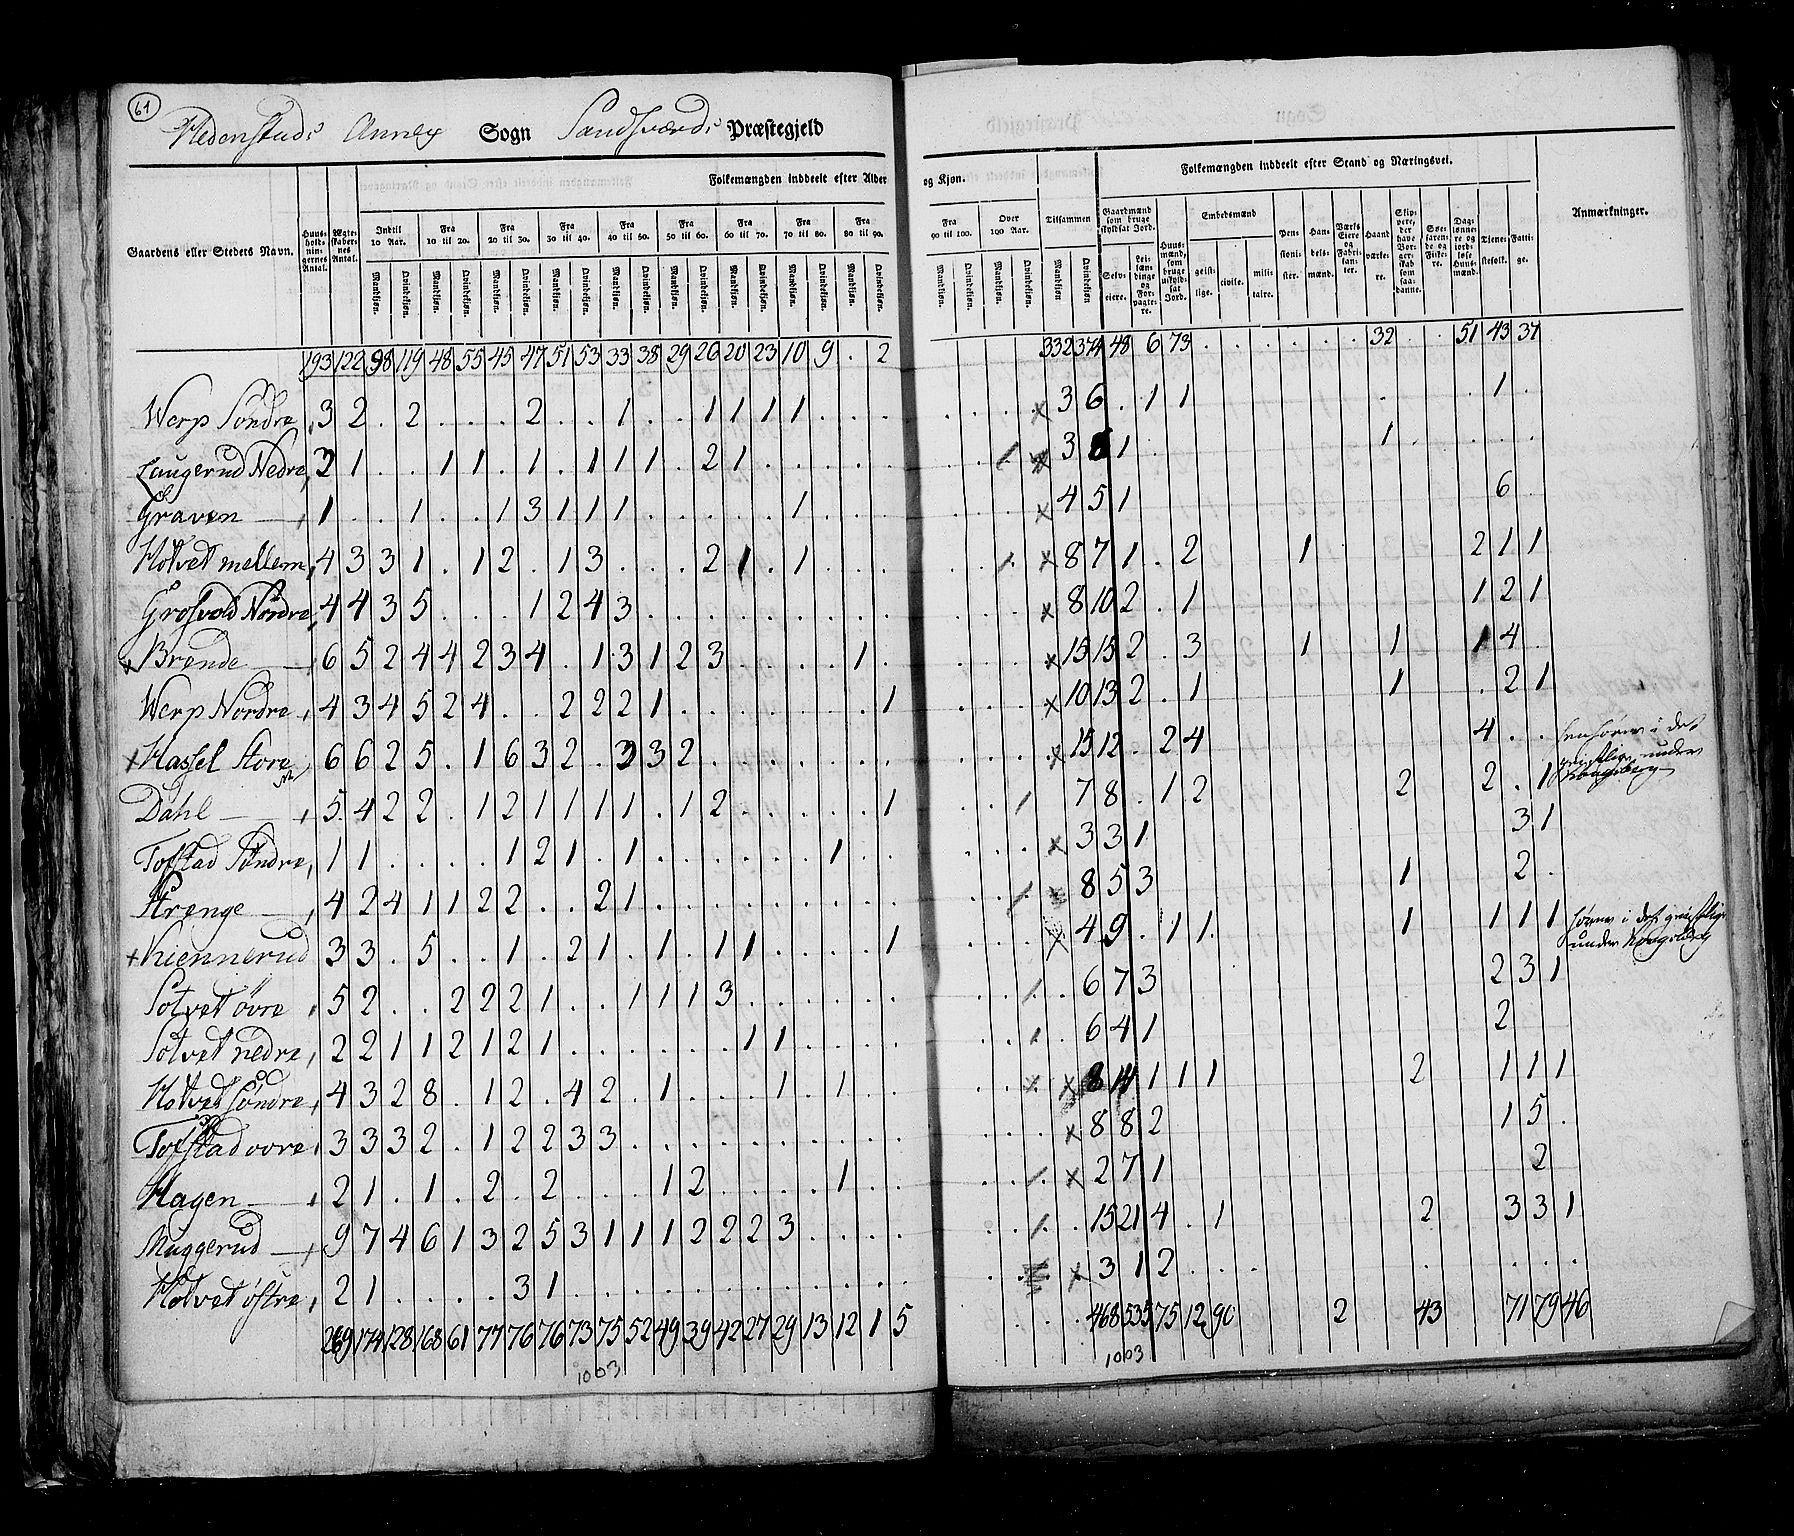 61
Hedenstads Annex Sogn Sandsværds Præstegjeld
Folkemængden inddeelt efter Alder og Kjøn.
Folkemængden inddeelt efter Stand og Næringsvei.
Gaardens eller Stedets Navn.
Huusholdningernes Antal.
Ægteskabernes Antal.
Indtil 10 Aar.
Fra 10 til 20.
Fra 20 til 30.
Fra 30 til 40.
Fra 40 til 50.
Fra 50 til 60.
Fra 60 til 70.
Fra 70 til 80.
Fra 80 til 90.
Fra 90 til 100.
Over 100 Aar.
Tilsammen
Mandkjøn. Qvindekjøn.
Gaardmænd som bruge skyldsat Jord.
Selveiere.
Leilændinge og Forpagtere.
Huusmænd, som bruge uskyldsat Jord.
Embedsmænd
geistlige. civile. militaire.
Pensionister.
Handelsmænd.
Værks Eiere og Fabrikanter.
Haandværkere.
Skippere, der have Borgerskab som saadanne.
Søefarende og Fiskere.
Daglønnere og jordløse Huusmænd.
Tjenestefolk.
Fattige.
Anmærkninger.
193 122 98 119 48 55 45 47 51 53 33 38 29 26 20 23 10 9 . 2 332 374 48 6 73 32 51 43 37
Werp Søndre 3 2 . 2 . . . 2 . . 1 . . 1 1 1 1 . . . x 3 6 . 1 1 1
Laugerud Nedre 1 . . 1 1 . 1 . 1 1 1 . 2 1 3 1 1
Graven 1 . . 1 . . 1 3 1 1 1 . . . . . 1 x 4 5 1 6
Hotvet mellem 4 3 3 1 . 1 2 . 1 3 . . . 2 1 . 1 x 8 7 1 . 2 1 2 1 1
Grosvold Nordre 4 4 3 5 . . . 1 2 4 3 x 8 10 2 . 1 1 2 1
x Brende 6 5 2 4 4 2 3 4 . 1 3 1 2 3 . . . . 1 x 15 15 2 . 3 1 1 1 4
Werp Nordre 4 3 4 5 2 4 . . 2 2 2 1 . . . . . . . 1 x 10 13 2 . 1 1 . 2 1
x Hassel Store 6 6 2 5 . 1 6 3 2 . 3 3 2 x 15 12 . 2 4 4 . .
Dahl 5 4 2 2 . 1 2 1 1 1 1 . 1 2 . . . . . 1 7 8 . 1 2 2 2 . 1
Tofstad Søndre 1 1 . . . . 1 2 1 . 1 . . . . . . 1 x 3 3 1 3 1
Strenge 4 2 4 1 1 2 2 . . 2 1 8 5 3 1 2 .
x Kiennerud 3 3 . 5 . . 1 . 2 1 . 1 . 1 1 . . . . 1 x 4 9 . 1 1 1 1 1 1
under Kongsberg
Sotvet øvre 5 2 . . 2 2 2 1 . . 1 1 1 3 6 7 3 2 3 1
Sotvet nedre 2 2 1 1 2 1 2 1 . . . . . . 1 1 6 4 1 2
Hotvet søndre 4 3 2 8 . 1 2 . 4 2 . 1 . . . 1 . 1 x 8 14 1 1 1 2 1 1 1
Tofstad ovre 3 3 3 2 . 1 2 2 3 3 x 8 8 2 1 5 .
Hagen 2 1 . 1 . 2 . 2 . . . 1 2 . . . . 1 x 2 7 1 2
Muggerud 9 7 4 6 1 3 2 5 3 1 1 1 2 2 2 3 15 21 4 . 1 2 3 3 1
Hotvet østre 2 1 . . . . 3 1 x 3 1 2
269 174 128 168 61 77 76 76 73 75 52 49 39 42 27 29 13 12 1 5 468 535 75 12 90 2 43 71 79 46
1003
1003